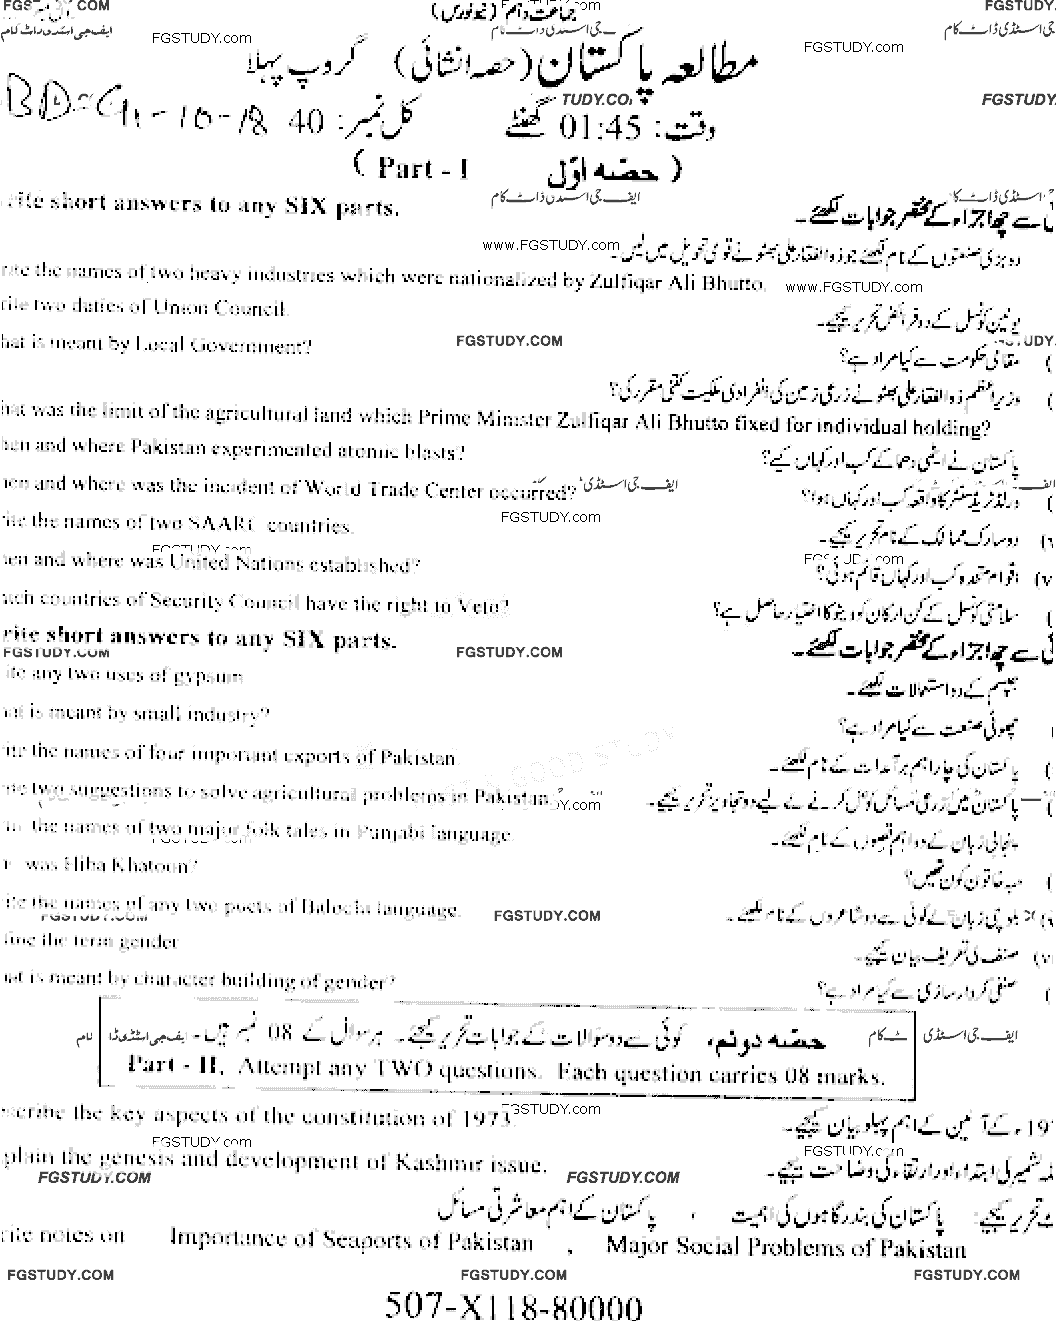 FGSTUDY.COM FGSTUDY.com
جماعت دہم (نیو کورس)
FGSTUDY.com ایف جی اسٹڈی ڈاٹ کام FGSTUDY.com
مطالعہ پاکستان (حصہ انشائی) گروپ پہلا
TUDY.CO FGSTUDY.
وقت: 01:45 گھنٹے کل نمبر: 40
11-10-18
(حصہ اوّل Part - I)
rite short answers to any SIX parts. سے چھ اجزاء کے مختصر جوابات لکھئے۔
www.FGSTUDY.com دو بڑی صنعتوں کے نام لکھئے جو ذوالفقار علی بھٹو نے قومی تحویل میں لیں۔
rite the names of two heavy industries which were nationalized by Zulfiqar Ali Bhutto. www.FGSTUDY.com
rite two duties of Union Council. یونین کونسل کے دو فرائض تحریر کیجیے۔
FGSTUDY.COM
hat is meant by Local Government? مقامی حکومت سے کیا مراد ہے؟
وزیراعظم ذوالفقار علی بھٹو نے زرعی زمین کی انفرادی ملکیت کتنی مقرر کی؟
hat was the limit of the agricultural land which Prime Minister Zulfiqar Ali Bhutto fixed for individual holding?
hen and where Pakistan experimented atomic blasts? پاکستان نے ایٹمی دھماکے کب اور کہاں کیے؟
hen and where was the incident of World Trade Center occurred? ایف جی اسٹڈی ورلڈ ٹریڈ سنٹر کا واقعہ کب اور کہاں ہوا؟
FGSTUDY.com
rite the names of two SAARC countries. دو سارک ممالک کے نام تحریر کیجیے۔
FGSTUDY.com FGSTUDY.com
hen and where was United Nations established? اقوام متحدہ کب اور کہاں قائم ہوئی؟
hich countries of Security Council have the right to Veto? سلامتی کونسل کے کن ارکان کو ویٹو کا اختیار حاصل ہے؟
rite short answers to any SIX parts. ئی سے چھ اجزاء کے مختصر جوابات لکھئے۔
FGSTUDY.COM FGSTUDY.COM
ite any two uses of gypsum جپسم کے دو استعمالات لکھئے۔
hat is meant by small industry? چھوٹی صنعت سے کیا مراد ہے؟
rite the names of four important exports of Pakistan. پاکستان کی چار اہم برآمدات کے نام لکھئے۔
ite two suggestions to solve agricultural problems in Pakistan. پاکستان میں زرعی مسائل کو حل کرنے کے لیے دو تجاویز تحریر کیجیے۔
the names of two major folk tales in Punjabi language. پنجابی زبان کے دو اہم قصوں کے نام لکھیے۔
was Hiba Khatoon? حبہ خاتون کون تھیں؟
ite the names of any two poets of Balochi language. بلوچی زبان کے کوئی سے دو شاعروں کے نام لکھیے۔
FGSTUDY.COM FGSTUDY.COM
fine the term gender صنف کی تعریف بیان کیجیے۔
hat is meant by character building of gender? صنفی کردار سازی سے کیا مراد ہے؟
حصہ دوئم، کوئی سے دو سوالات کے جوابات تحریر کیجئے۔ ہر سوال کے 08 نمبر ہیں۔
Part - II, Attempt any TWO questions. Each question carries 08 marks.
scribe the key aspects of the constitution of 1973. FGSTUDY.com ء کے آئین کے اہم پہلو بیان کیجیے۔
FGSTUDY.com FGSTUDY.com
plain the genesis and development of Kashmir issue. کشمیر کی ابتداء اور ارتقاء کی وضاحت کیجیے۔
FGSTUDY.COM FGSTUDY.COM
تحریر کیجیے: پاکستان کی بندرگاہوں کی اہمیت ، پاکستان کے اہم معاشرتی مسائل
rite notes on Importance of Seaports of Pakistan , Major Social Problems of Pakistan
FGSTUDY.COM FGSTUDY.COM FGSTUDY.COM
507-X118-80000